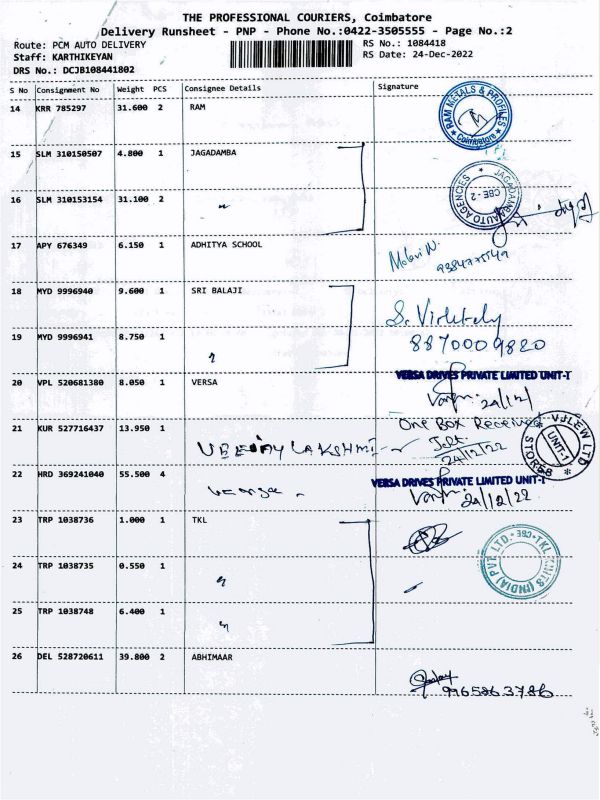 THE PROFESSIONAL COURIERS, Coimbatore
Delivery Runsheet - PNP - Phone No.:0422-3505555 - Page No.:2
Route: PCM AUTO DELIVERY
RS No.: 1084418
Staff: KARTHIKEYAN
RS Date: 24-Dec-2022
DRS No.: DCJB108441802
S No Consignment No Weight PCS Consignee Details Signature
14 KRR 785297 31.600 2 RAM
RAM METALS & PROFILES
* Coimbatore *
15 SLM 310150507 4.800 1 JAGADAMBA
JAGADAMBA AUTO AGENCIES
CBE - 2
16 SLM 310153154 31.100 2 "
17 APY 676349 6.150 1 ADHITYA SCHOOL
18 MYD 9996940 9.600 1 SRI BALAJI
8870009820
19 MYD 9996941 8.750 1 "
20 VPL 520681380 8.050 1 VERSA
VERSA DRIVES PRIVATE LIMITED UNIT-I
24/12/
21 KUR 527716437 13.950 1
One Box Received
24/12/22
LAKSHMI
UNIT-1
22 HRD 369241040 55.500 4
VERSA DRIVES PRIVATE LIMITED UNIT-I
24/12/22
23 TRP 1038736 1.000 1 TKL
(INDIA) PVT. LTD.
CBE
24 TRP 1038735 0.550 1 "
25 TRP 1038748 6.400 1 "
26 DEL 528720611 39.800 2 ABHIMAAR
9965863786